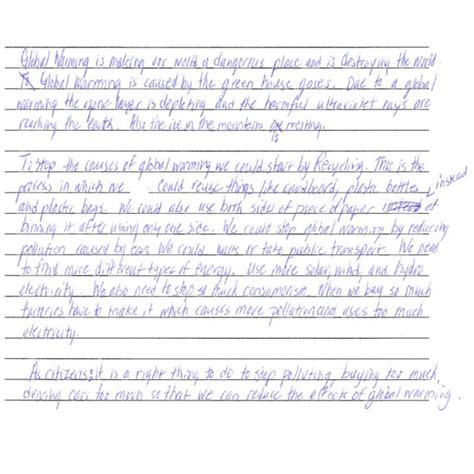 Global Warming is making our world a dangerous place and is destroying the world.
Global Warming is caused by the green house gases. Due to a global
warming the ozone layer is depleting and the harmful ultraviolet rays are
reaching the earth. Also the ice in the mountains is melting.
To stop the causes of global warming we could start by Recycling. This is the
process in which we could reuse things like cardboard, plastic bottles
and plastic bags. We could also use both sides of piece of paper instead of
binning it after using only one side. We could stop global warming by reducing
pollution caused by cars. We could walk or take public transport. We need
to find more different types of energy. Use more solar, wind, and hydro
electricity. We also need to stop so much consumerism. When we buy so much
factories have to make it which causes more pollution and uses too much
electricity.
As citizens it is a right thing to do to stop polluting, buying too much,
driving cars too much so that we can reduce the effects of global warming.